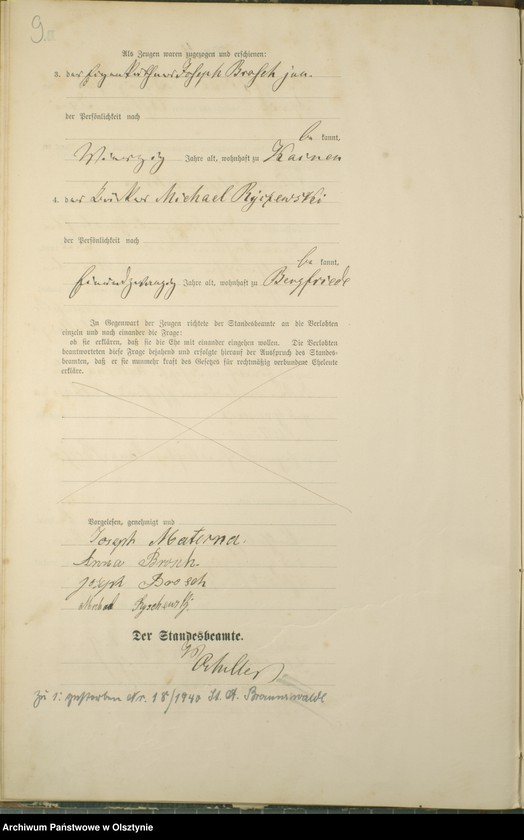 9a
Als Zeugen waren zugezogen und erschienen:
3. der Eigenkäthner Joseph Brosch jun.
der Persönlichkeit nach
be kannt,
Vierzig Jahre alt, wohnhaft zu Kainen
4. der Michael Ryszewski
der Persönlichkeit nach
be kannt,
Jahre alt, wohnhaft zu Bergfriede
In Gegenwart der Zeugen richtete der Standesbeamte an die Verlobten
einzeln und nach einander die Frage:
ob sie erklären, daß sie die Ehe mit einander eingehen wollen. Die Verlobten
beantworteten diese Frage bejahend und erfolgte hierauf der Ausspruch des Standes-
beamten, daß er sie nunmehr kraft des Gesetzes für rechtmäßig verbundene Eheleute
erkläre.
Vorgelesen, genehmigt und
Joseph Materna.
Anna Brosch.
Joseph Brosch
Michael
Der Standesbeamte.
Zu 1: gestorben Nr. 18/1940 St. A. Braunswalde
Archiwum Państwowe w Olsztynie